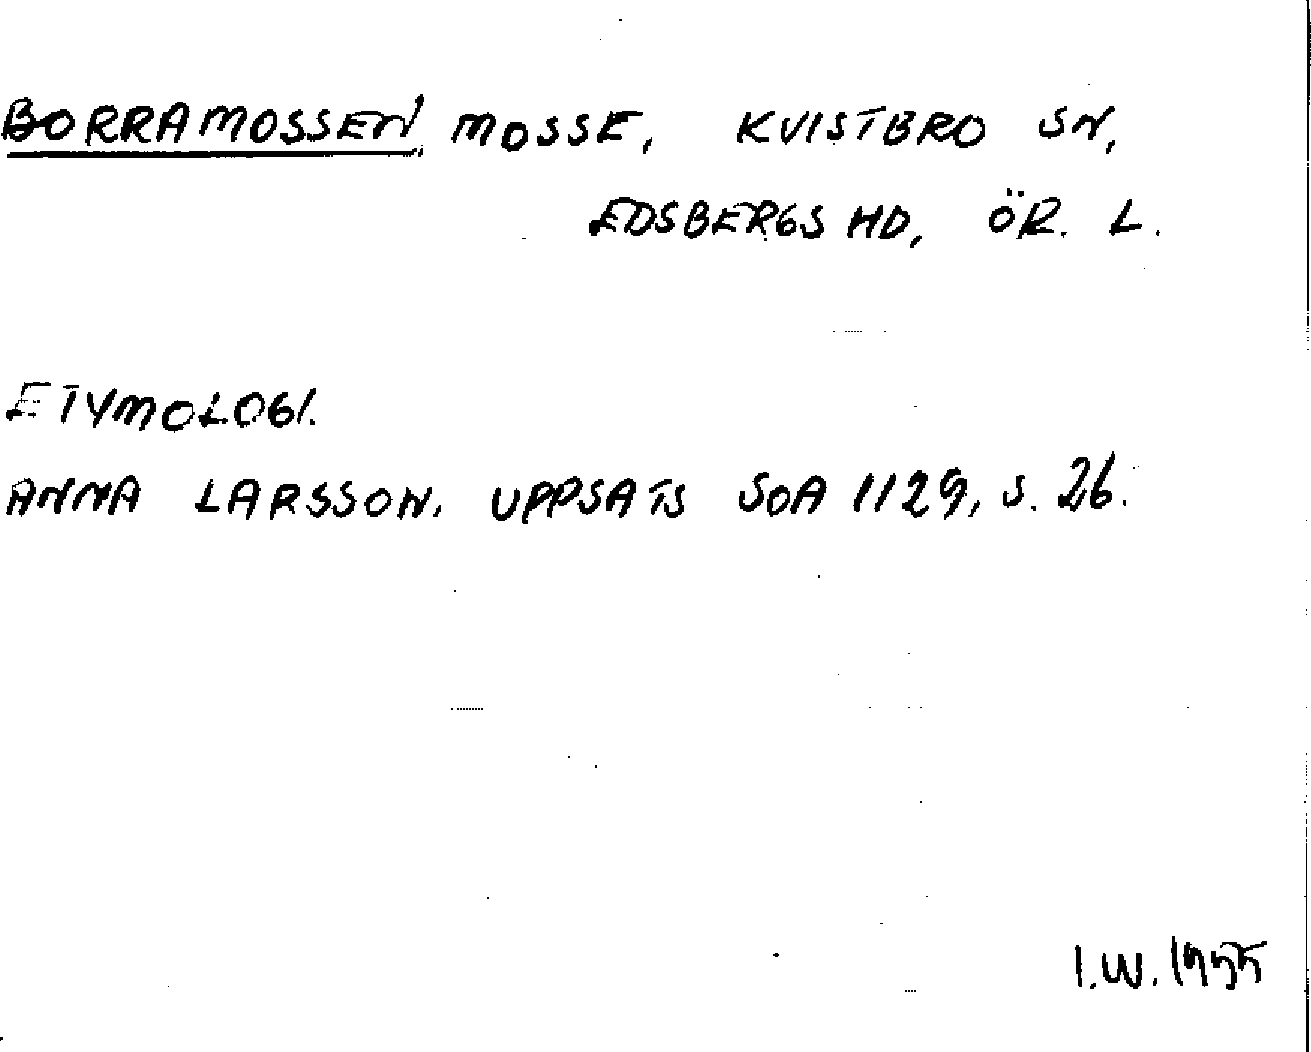 BORRAMOSSEN MOSSE, KVISTBRO SN,
EDSBERGS HD, ÖR. L.
ETYMOLOGI.
ANNA LARSSON. UPPSATS SOA 1129, S. 26.
I.W. 1955